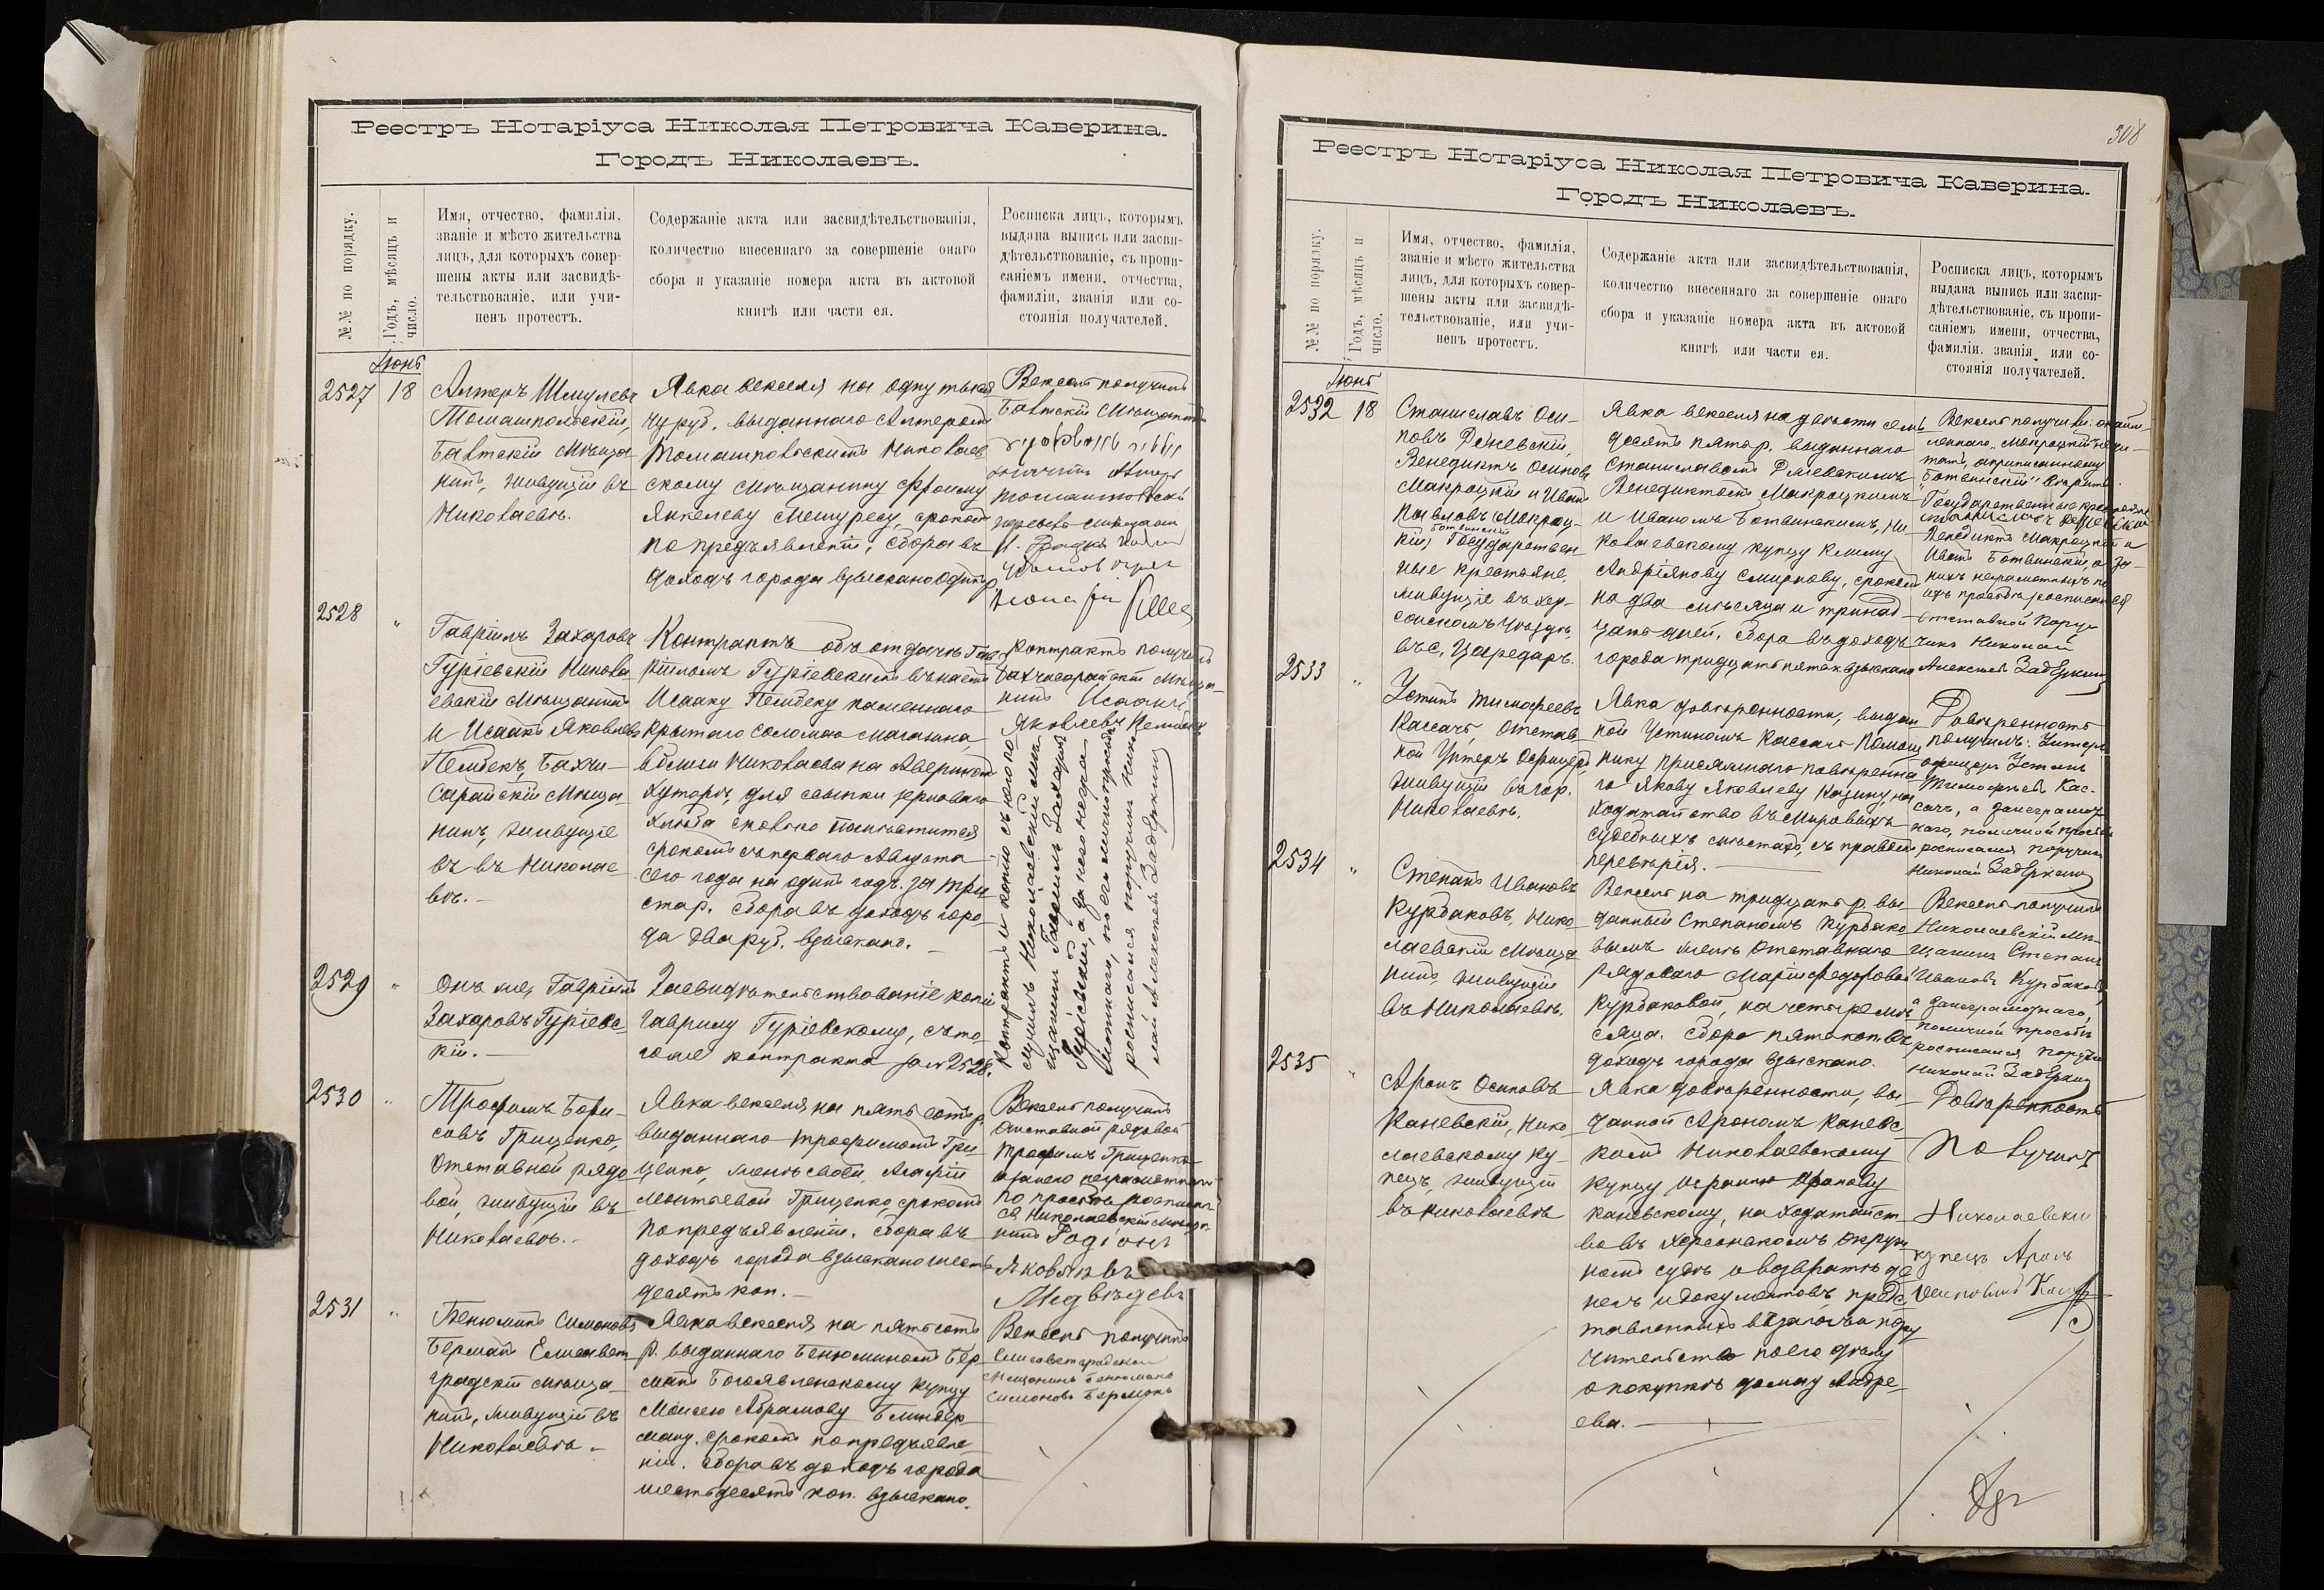 Реестръ Нотаріуса Николая Петровича Каверина.
Городъ Николаевъ.
№№ по порядку.
Годъ, мѣсяцъ и
число.
Имя, отчество, фамилія,
званіе и мѣсто жительства
лицъ, для которыхъ совер-
шены акты или засвидѣ-
тельствованіе, или учи-
ненъ протестъ.
Содержаніе акта или засвидѣтельствованія,
количество внесеннаго за совершеніе онаго
сбора и указаніе номера акта въ актовой
книгѣ или части ея.
Росписка лицъ, которымъ
выдана выпись или засви-
дѣтельствованіе, съ пропи-
саніемъ имени, отчества,
фамиліи, званія или со-
стоянія получателей.
Іюнь
2527
18
Алтеръ Шмулевъ
Томашпольскій,
Балтскій мѣща
нинъ, живущій въ
Николаевѣ.
Явка векселя на одну тыся
чу руб. выданнаго Алтеромъ
Томашпольскимъ Николаев
скому мѣщанину Фроиму
Янкелеву Мешуресу, срокомъ
по предъявленіи, сбора въ
доходъ города взыскано одинъ р.
Вексель получилъ
Балтскій мѣщанинъ
2528
"
Гавріилъ Захаровъ
Гуріевскій Никола
евскій мѣщанинъ
и Исаакъ Яковлевъ
Пембекъ, Бахчи-
сарайскій мѣща
нинъ, живущіе
въ Николае
вѣ.-
Контрактъ объ отдачѣ Гав
ріиломъ Гуріевскимъ въ наемъ
Исааку Пембеку каменнаго
крытаго соломою магазина,
вблизи Николаева на
хуторѣ, для ссыпки зернового
хлѣба сколько помѣстится
срокомъ съ перваго Августа
сего года на одинъ годъ. за три
ста р. сбора въ доходъ горо-
да два руб. взыскано.-
Контрактъ получилъ
Бахчисарайскій мѣща-
нинъ Исаакъ
Яковлевъ Пембекъ
Контрактъ и копію съ него по-
лучилъ Николаевскій мѣ-
щанинъ Гавріилъ Захаровъ
Гуріевскій, а за него негра-
мотнаго, по его личной просьбѣ
росписался поручикъ Нико-
лай Алексѣевъ Задеркинъ
2529
"
Онъ же, Гавріилъ
Захаровъ Гуріевс-
кій.-
Засвидѣтельствованіе копіи
Гаврилу Гуріевскому, съ то-
го же контракта за № 2528.
2530
"
Трофимъ Бори-
совъ Гриценко,
отставной рядо
вой, живущій въ
Николаевѣ.-
Явка векселя на пять сотъ р.
выданнаго Трофимомъ Гри-
ценко, женѣ своей, Агафіи
Леонтьевой Гриценко, срокомъ
по предъявленіи. сбора въ
доходъ города взыскано шесть
десятъ коп.-
Вексель получилъ
отставной рядовой
Трофимъ Гриценко
а за него неграмотнаго
по просьбѣ росписал-
ся Николаевскій мѣщан-
нинъ Родіонъ
Яковлевъ
Медвѣдевъ
2531
"
Бенюминъ Симоновъ
Берманъ Елисавет
градскій мѣща-
нинъ, живущій въ
Николаевѣ.-
Явка векселя на пятьсотъ
р. выданнаго Бенюминомъ Бер
манъ Богоявленскому купцу
Моисею Абрамову Блиндер
ману, срокомъ по предъявле-
ніи. сбора въ доходъ города
шестьдесятъ коп. взыскано.
Вексель получилъ
Елисаветградскій
мѣщанинъ Бенюминъ
Симоновъ Берманъ
308
Реестръ Нотаріуса Николая Петровича Каверина.
Городъ Николаевъ.
№№ по порядку.
Годъ, мѣсяцъ и
число.
Имя, отчество, фамилія,
званіе и мѣсто жительства
лицъ, для которыхъ совер-
шены акты или засвидѣ-
тельствованіе, или учи-
ненъ протестъ.
Содержаніе акта или засвидѣтельствованія,
количество внесеннаго за совершеніе онаго
сбора и указаніе номера акта въ актовой
книгѣ или части ея.
Росписка лицъ, которымъ
выдана выпись или засви-
дѣтельствованіе, съ пропи-
саніемъ имени, отчества,
фамиліи, званія или со-
стоянія получателей.
Іюнь
2532
18
Станиславъ Оси-
повъ
Венедиктъ Осиповъ
Макроцкій и Иванъ
Павловъ Макроц-
Ботвинскій
кій, Государствен
ные крестьяне,
живущіе въ Хер-
сонскомъ уѣздѣ,
въ с. Царедаръ.
Явка векселя на двѣсти семь
десятъ пять р. выданнаго
Станиславомъ
Венедиктомъ Макроцкимъ
и Иваномъ Ботвинскимъ, Ни-
колаевскому купцу Климу
Андріянову Смирнову, срокомъ
на два мѣсяца и тринад
цать дней. сбора въ доходъ
города тридцать пять к. взыскано
Вексель получили:
"Макроцкій" не чи-
тать, а приписанному
"Ботвинскій" вѣрить.
Государственные крестьяне
Станиславъ
Венедиктъ Макроцкій и
Иванъ Ботвинскій, а за
нихъ неграмотныхъ по
ихъ просьбѣ росписался
отставной Пору-
чикъ Николай
Алексѣевъ Задеркинъ
2533
"
Устинъ Тимофеевъ
Кассачъ, отстав
ной Унтеръ Офицеръ
живущій въ гор.
Николаевѣ.
Явка довѣренности, выдан
ной Устиномъ Кассачъ Помощ
нику присяжнаго повѣренна
го Якову Яковлеву Кацину, на
ходатайство въ Мировыхъ
судебныхъ мѣстахъ, съ правомъ
перевѣрія.
Довѣренность
получилъ: Унтеръ
офицеръ Устинъ
Тимофеевъ Кас-
сачъ, а за неграмот
наго, по личной просьбѣ
росписался поручикъ
Николай Задеркинъ
2534
"
Степанъ Ивановъ
Курбаковъ, Нико
лаевскій мѣща
нинъ, живущій
въ Николаевѣ.
Вексель на тридцать р. вы-
данный Степаномъ Курбако
вымъ женѣ отставнаго
рядоваго Маріи Федоровой
Курбаковой, на четыре мѣ-
сяца. сбора пять коп. въ
доходъ города взыскано.
Вексель получилъ
Николаевскій мѣ-
щанинъ Степанъ
Ивановъ Курбаковъ,
а за неграмотнаго,
по личной просьбѣ
росписался поручикъ
Николай Задеркинъ
2535
"
Аронъ Осиповъ
Каневскій, Нико
лаевскому ку-
пецъ, живущій
въ Николаевѣ
Явка довѣренности, вы-
данной Арономъ Каневс-
кимъ Николаевскому
купцу Аронову
Каневскому, на ходатайст-
во въ Херсонскомъ Окруж
номъ судѣ о возвратѣ де
негъ и документовъ, предс
тавленныхъ въ залогъ и пору
чительство по его дѣлу
о покупкѣ дома у Андре-
ева.-
Довѣренность
Получилъ
Николаевски
купецъ Аронъ
Осиповичъ